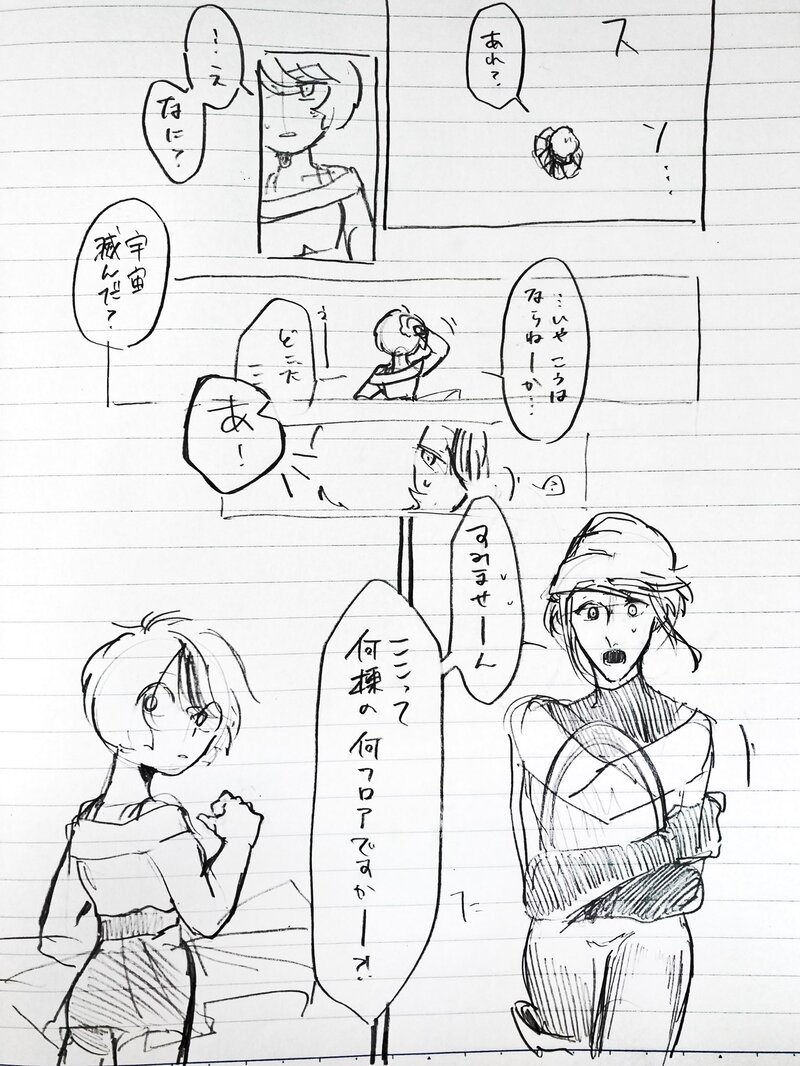 あれ?
ス
ン…
…え
なに?
…いや こうは
ならねーか…
どこだ
ここ
宇宙
滅んだ?
あ!
すみませーん
ここって
何棟の 何フロアですかー?!
た